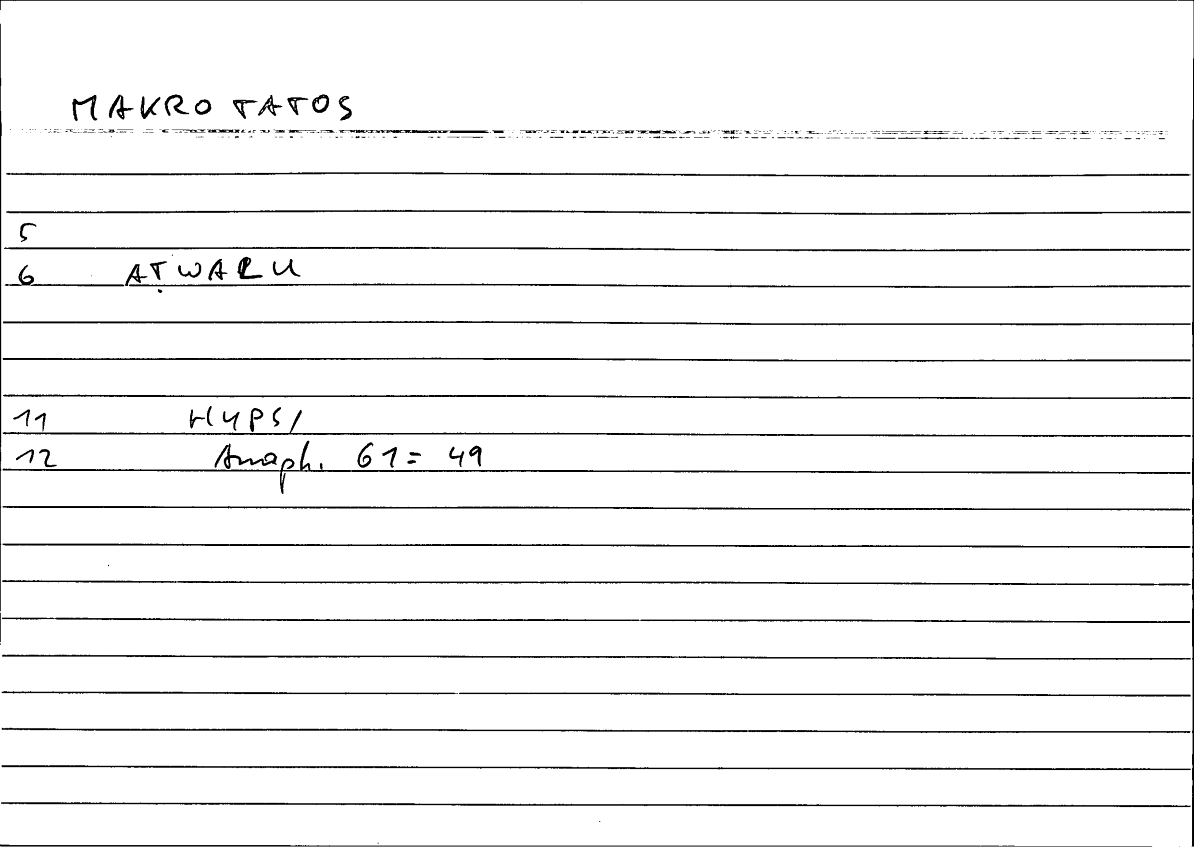 MAKROTATOS
5
6 AṬWALU
11 HYPS/
12 Anaph. 61 = 49